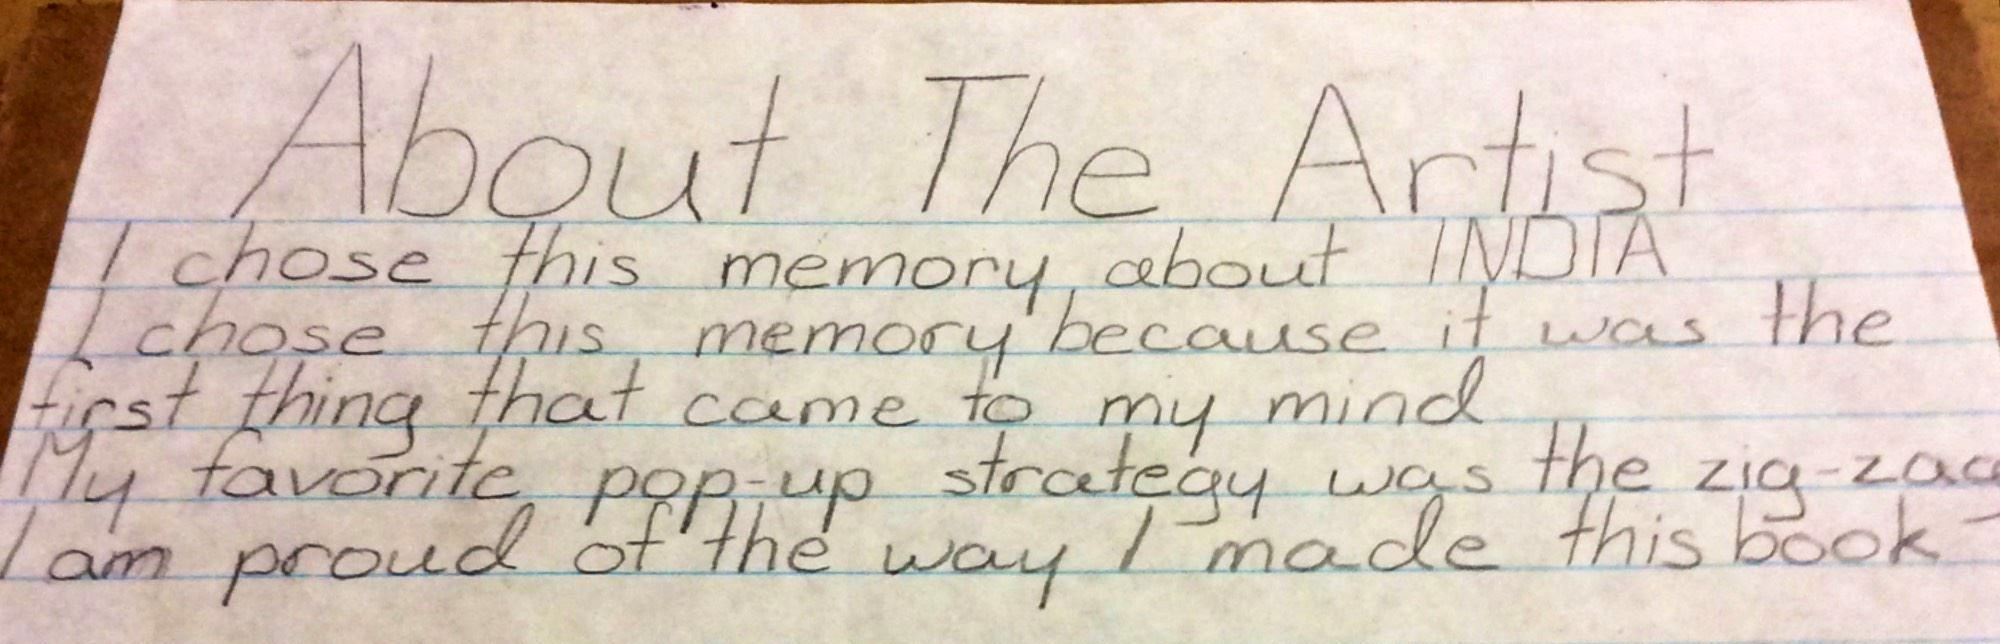 About The Artist
I chose this memory about INDIA
I chose this memory because it was the
first thing that came to my mind
My favorite pop-up strategy was the zig-zag
I am proud of the way I made this book